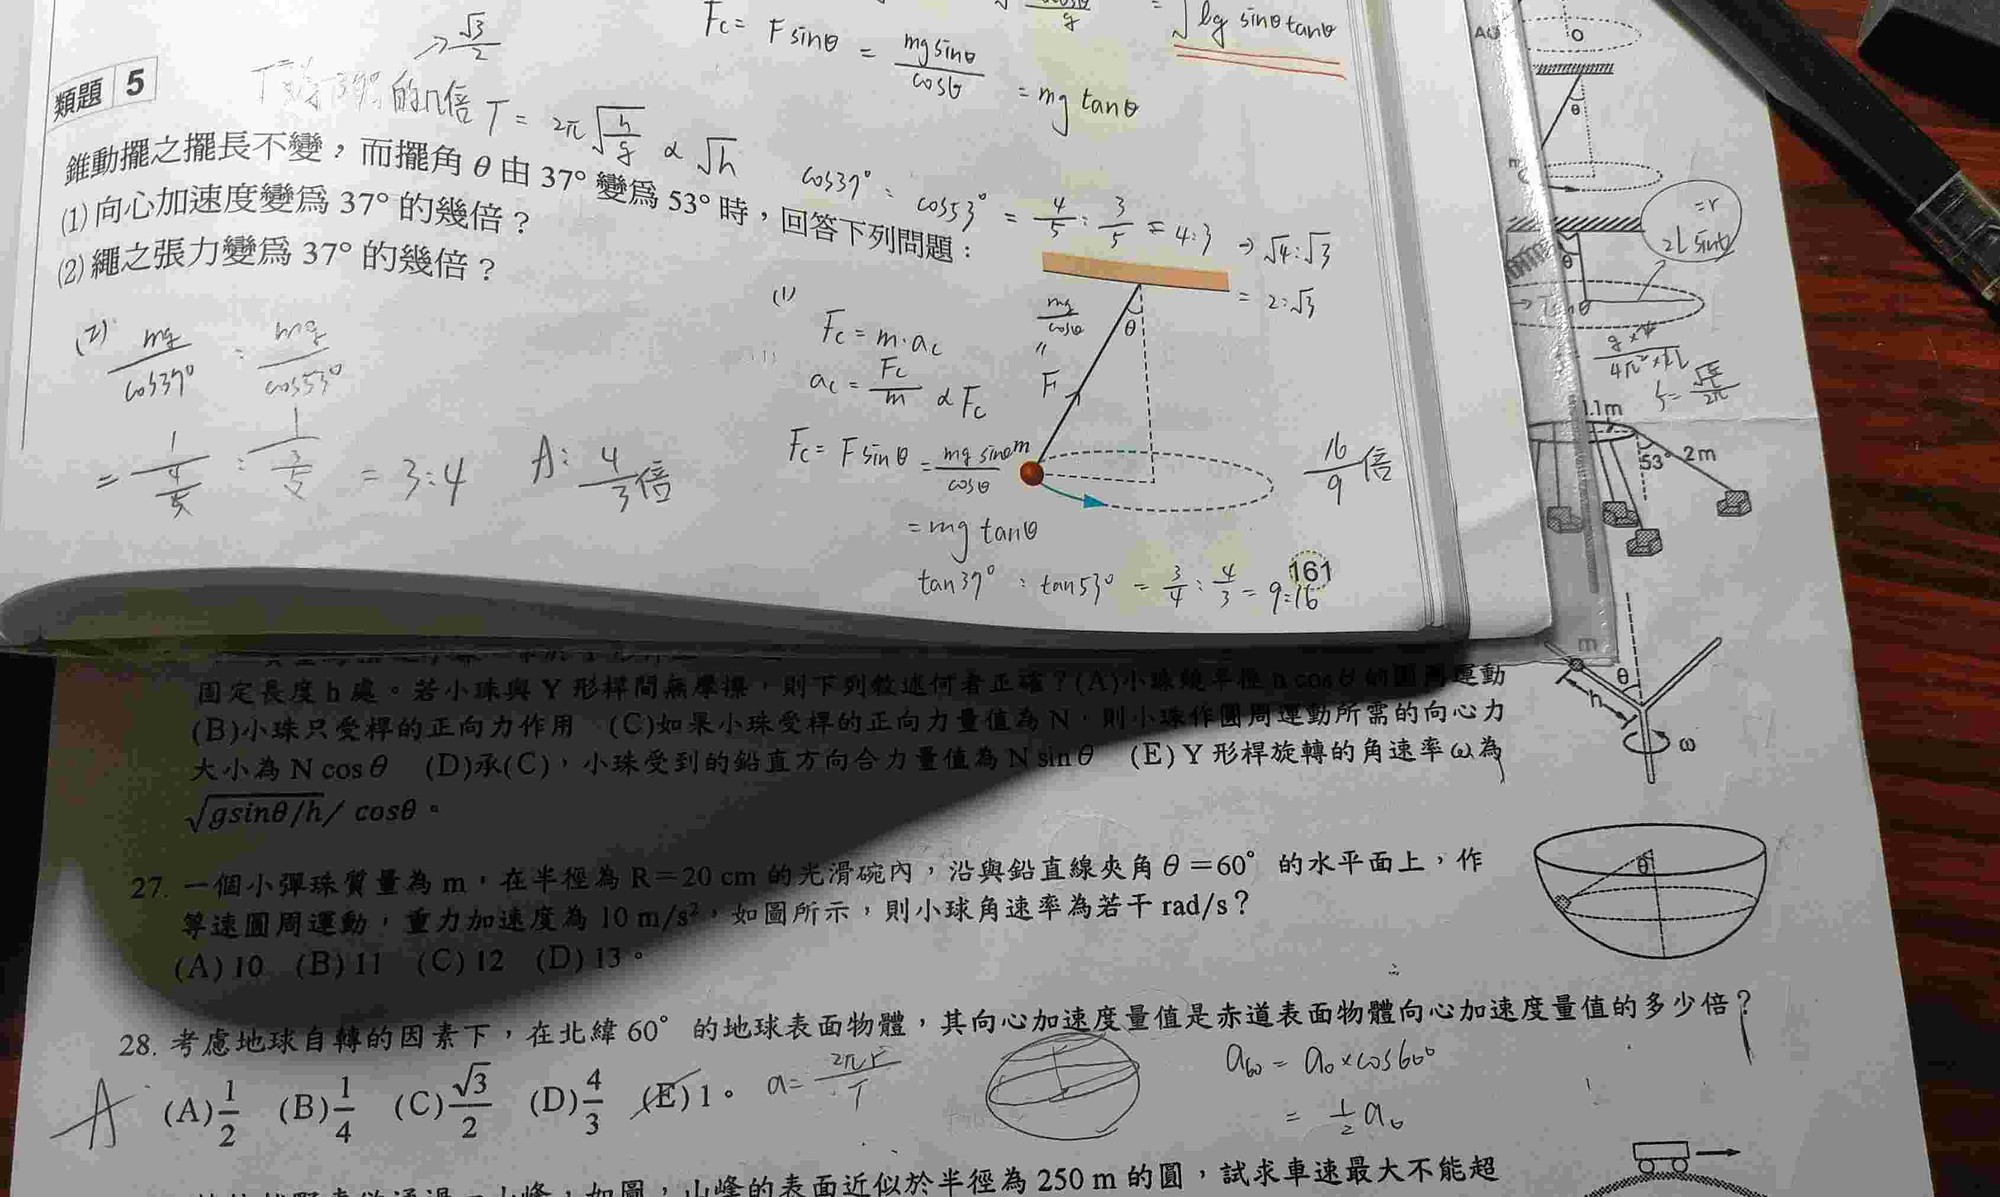 √3/2
Fc = F sinθ = mg sinθ/cosθ = mg tanθ
√(lg sinθ tanθ)
類題 5
的n倍 T = 2π√(h/g) ∝ √h
錐動擺之擺長不變，而擺角 θ 由 37° 變為 53° 時，回答下列問題：
(1) 向心加速度變為 37° 的幾倍？
(2) 繩之張力變為 37° 的幾倍？
cos37° : cos53° = 4/5 : 3/5 = 4:3 → √4:√3
= 2:√3
(2) mg/cos37° : mg/cos53°
= 1/(4/5) : 1/(3/5) = 3:4 A: 4/3倍
(1)
Fc = m·ac
ac = Fc/m ∝ Fc
Fc = F sinθ = mg sinθ/cosθ
= mg tanθ
tan37° : tan53° = 3/4 : 4/3 = 9:16
mg/cosθ
"
F
θ
m
16/9倍
161
O
θ
m
=r
θ
1.1m
53°
2m
固定長度 h 處。若小珠與 Y 形桿間無摩擦，則下列敘述何者正確？(A)小珠繞半徑 h cosθ 的圓周運動
(B)小珠只受桿的正向力作用 (C)如果小珠受桿的正向力量值為 N，則小珠作圓周運動所需的向心力
大小為 N cosθ (D)承(C)，小珠受到的鉛直方向合力量值為 N sinθ (E) Y 形桿旋轉的角速率ω為
√(gsinθ/h)/ cosθ。
m
θ
h
ω
27. 一個小彈珠質量為 m，在半徑為 R＝20 cm 的光滑碗內，沿與鉛直線夾角 θ＝60° 的水平面上，作
等速圓周運動，重力加速度為 10 m/s²，如圖所示，則小球角速率為若干 rad/s？
(A) 10 (B) 11 (C) 12 (D) 13。
θ
28. 考慮地球自轉的因素下，在北緯 60° 的地球表面物體，其向心加速度量值是赤道表面物體向心加速度量值的多少倍？
A (A) 1/2 (B) 1/4 (C) √3/2 (D) 4/3 (E) 1。 a = 2πr/T
a₆₀ = a₀×cos60°
= 1/2 a₀
，如圖，山峰的表面近似於半徑為 250 m 的圓，試求車速最大不能超